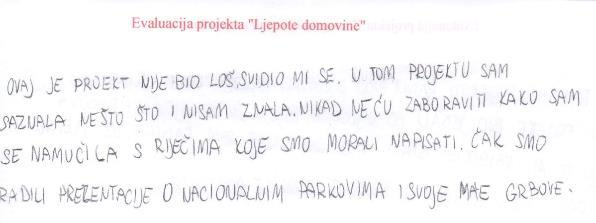 Evaluacija projekta "Ljepote domovine"
OVAJ JE PROEKT NIJE BIO LOŠ, SVIDIO MI SE. U TOM PROJEKTU SAM
SAZNALA NEŠTO ŠTO I NISAM ZNALA. NIKAD NEĆU ZABORAVITI KAKO SAM
SE NAMUČILA S RIJEČIMA KOJE SMO MORALI NAPISATI. ČAK SMO
RADILI PREZENTACIJE O NACIONALNIM PARKOVIMA I SVOJE MAE GRBOVE.